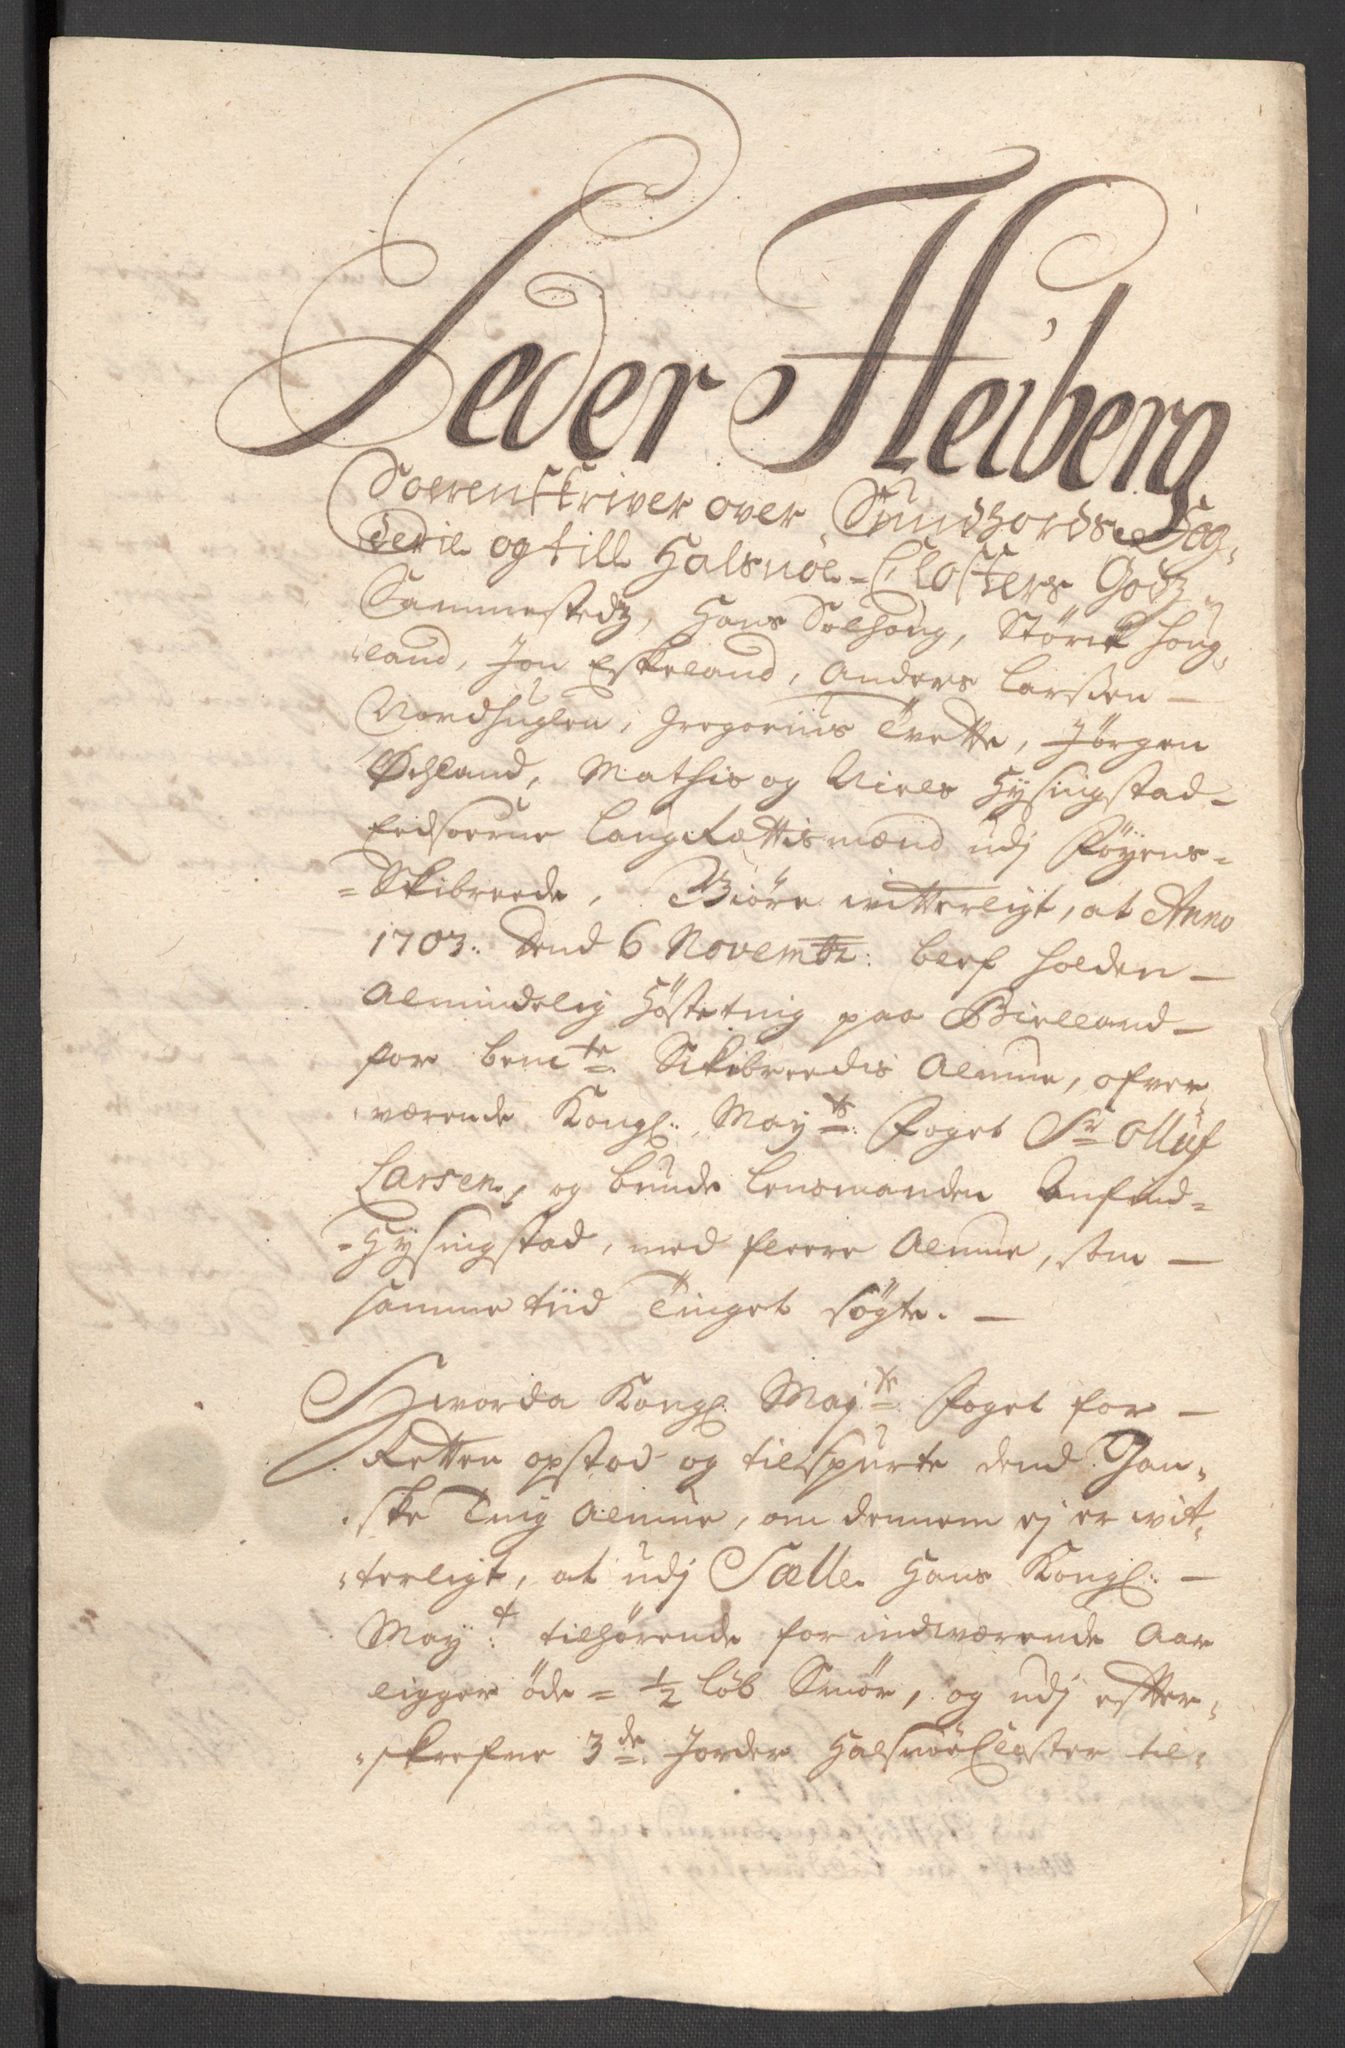 Peder Heiberg
Soerenskriver over Sundhords Fog-
derie og till Halsnöe-Closters Godz
Sammestedz, Hans Solhoug, Störck Houg-
land, Jon Eskeland, Anders Larssen -
Nordhuglen, Gregorius Tvette, Jörgen
Øchland, Mathis og Niels Hysingstad -
Eedsoerne Laugrættismænd udj Föyens-
Skibreede, Giöre witterligt, at Anno
1703: Dend 6 Novembr: blef holden -
Almindelig Hösteting paa Birkeland -
for bemte Skibreedis Almue, ofver-
værende Kongl: Mayts: Foget Sr Olluf
Larsen, og bunde Lensmanden Anfind -
Hysingstad, med fleere Almue, som -
samme tiid Tinget sögte. -
Hvorda Kongl Mayts Foget for -
Retten opstod og tilspurte dend Gan-
ske Ting Almue, om dennem ej er wit-
terligt, at udj Sælle Hans Kongl: -
Mayt: tilhörende for indwærende Aar
ligger öde = 1/2 Löb Smör, og udj efter-
skrefne 3de Jorder Halsnöe Closter til-